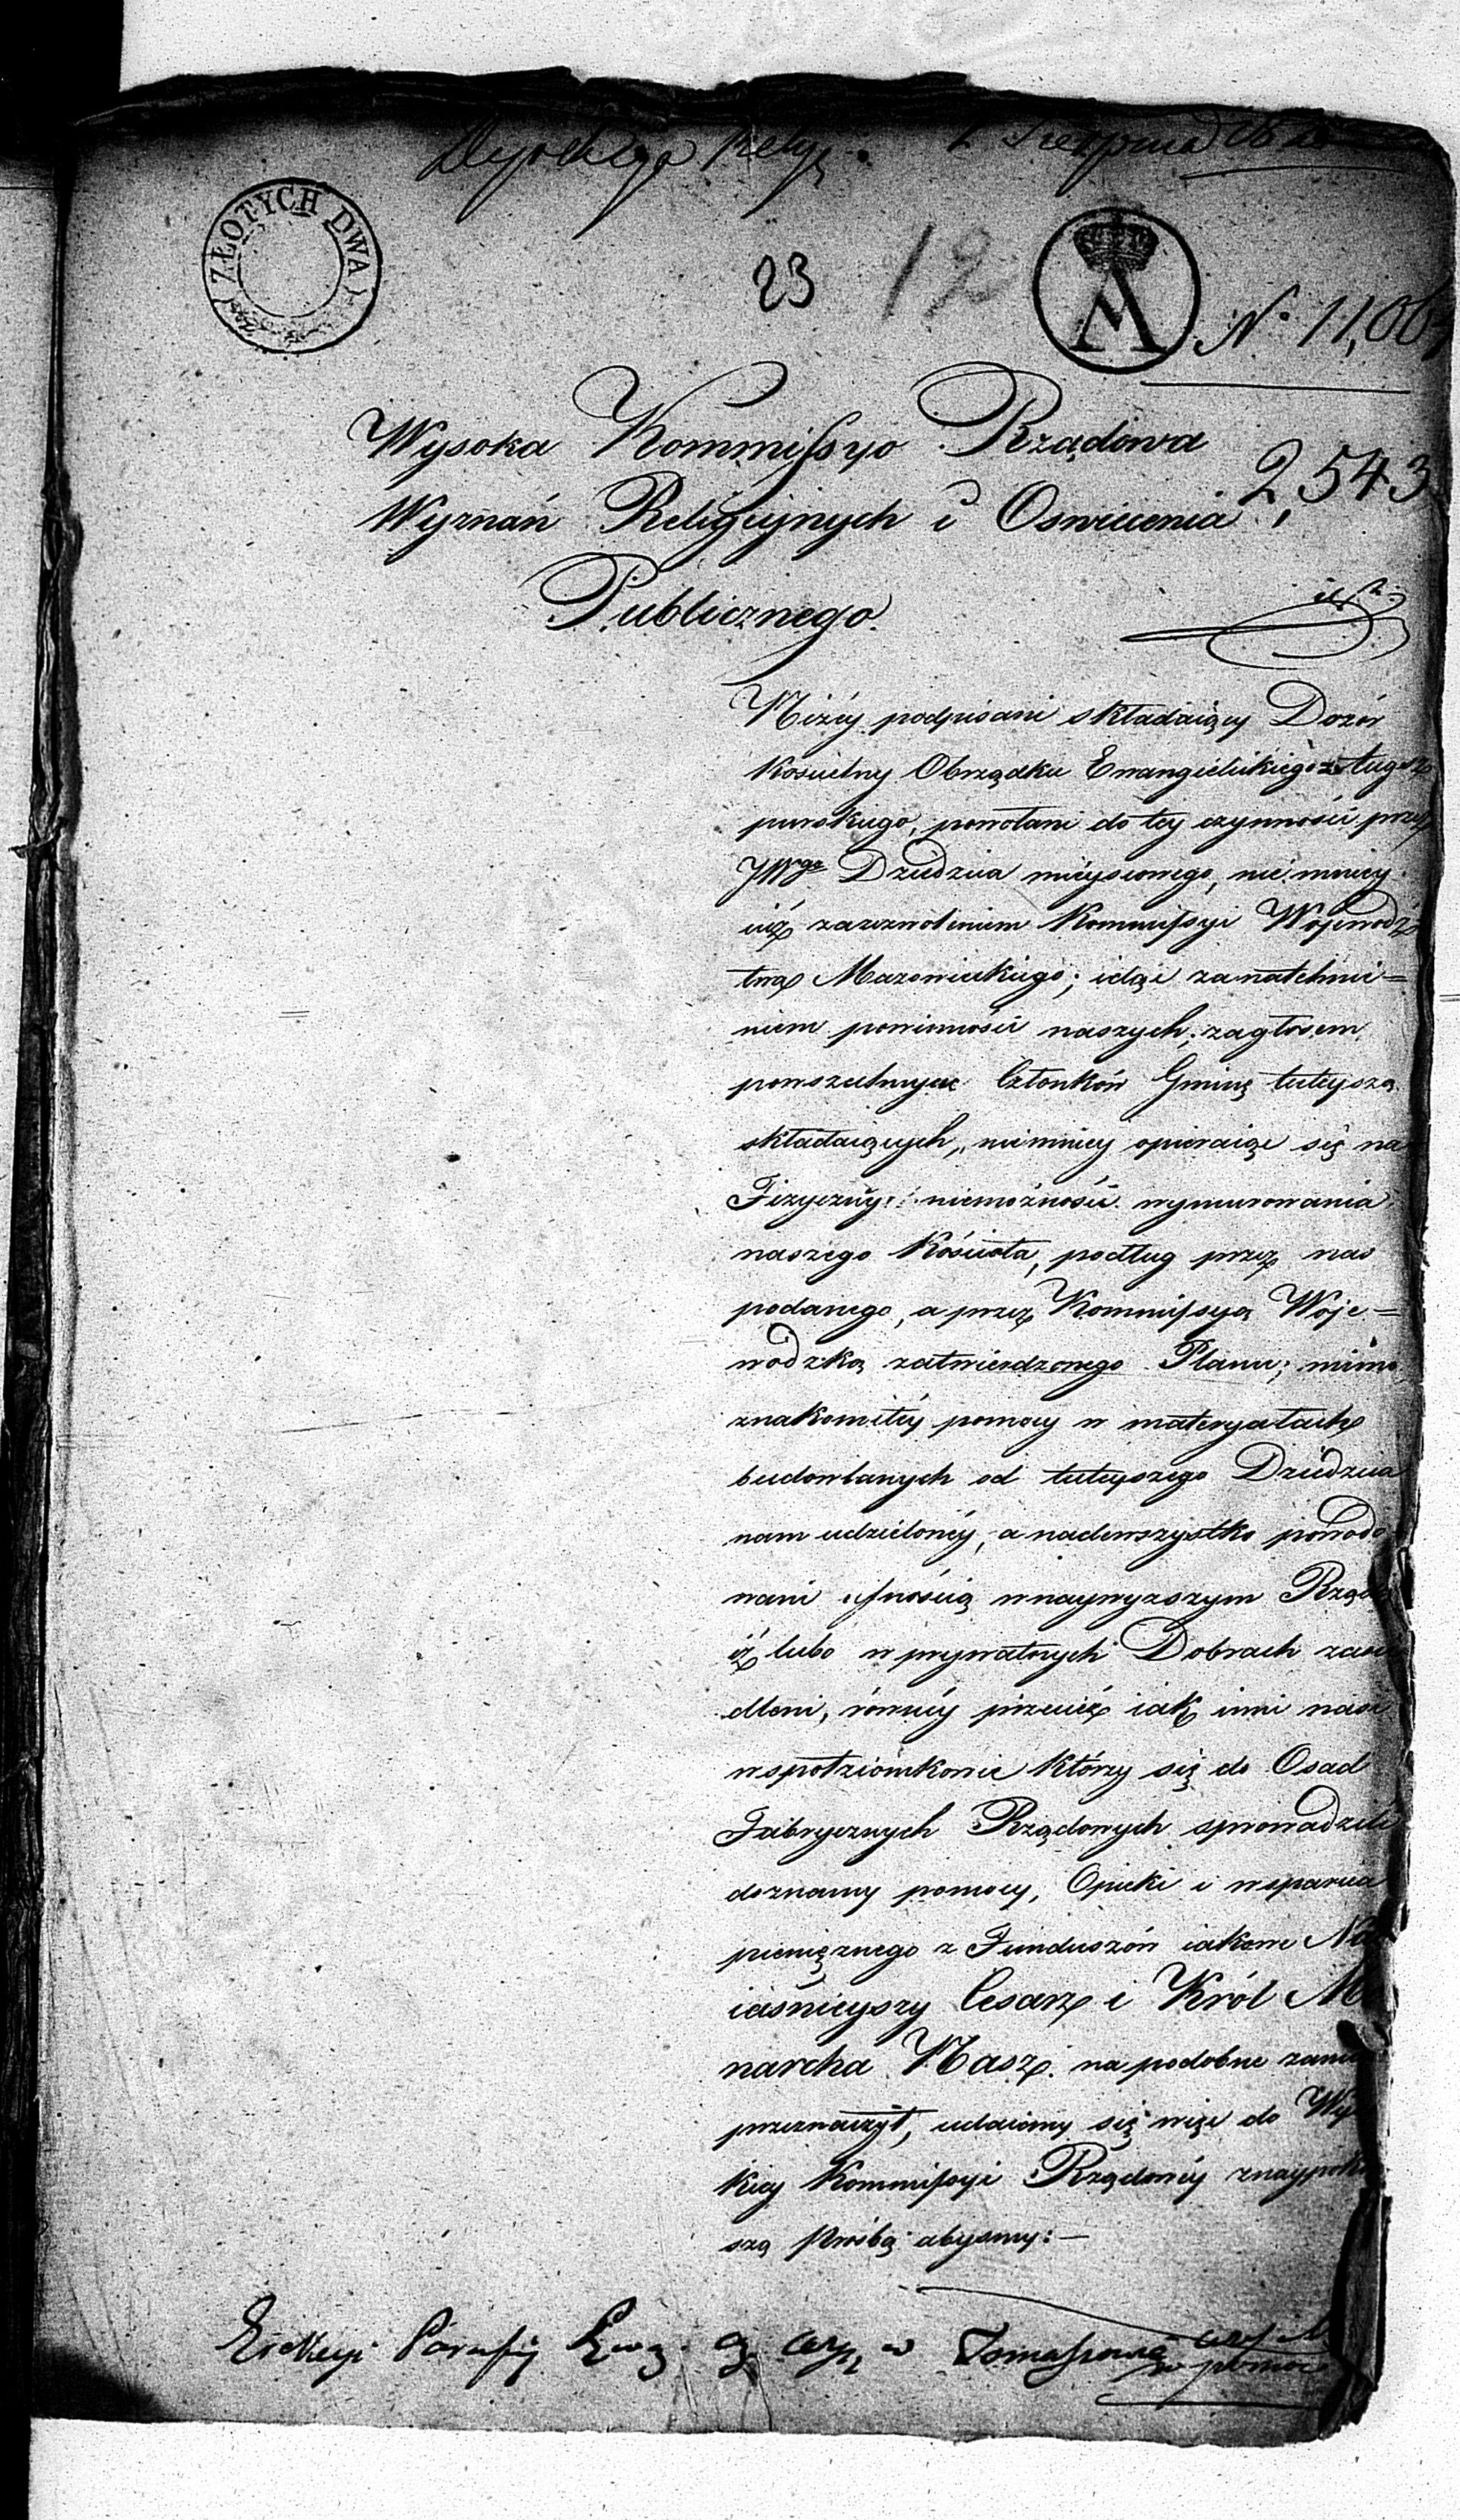 2 Sierpnia 18
ZŁOTYCH DWA
23
12
N° 11,06
Wysoka Kommissyo Rządowa
2,543
Wyznań Religijnych i Oswiecenia
Publicznego.
Niżéy podpisani składaiący Dozór
Kościelny Obrządku Ewangielickiego Augsz
purskiego, powołani do tey czynności przez
JWgo Dziedzica mieyscowego, nie mniey
iuż zazezwoleniem Kommissyi Wojewodz
twa Mazowieckiego; idąc zanatchnie=
niem powinności naszych, zagłosem
powszechnym Członków Gminę tuteyszą
składaiących, niemniey opieraiąc się na
Fizyczney niemożności wymurowania
naszego Kościoła, podług przez nas
podanego, a przez Kommissyą Woje=
wodzką zatwierdzonego Planu; mimo
znakomitéy pomocy w materyałach
budowlanych od tuteyszego Dziedzica
nam udzielonéy, a nadewszystko powodo
wani ufnością wnaywyższym Rządzie
iż lubo w prywatnych Dobrach zasie
dleni, równéy przecież iak inni nasi
współziomkowie którzy się do Osad
Fabrycznych Rządowych sprowadzili
doznamy pomocy, Opieki i wsparcia
pieniężnego z Funduszów iakowe Na
iaśnieyszy Cesarz i Król Mo
narcha Nasz na podobne zami
przeznaczył, udaiemy się więc do Wyso
kiey Kommissyi Rządowéy znaypoko
szą Proźbą abyśmy:—
Erekcyi Parafij Ewag. w Tomaszowie
w pomoc